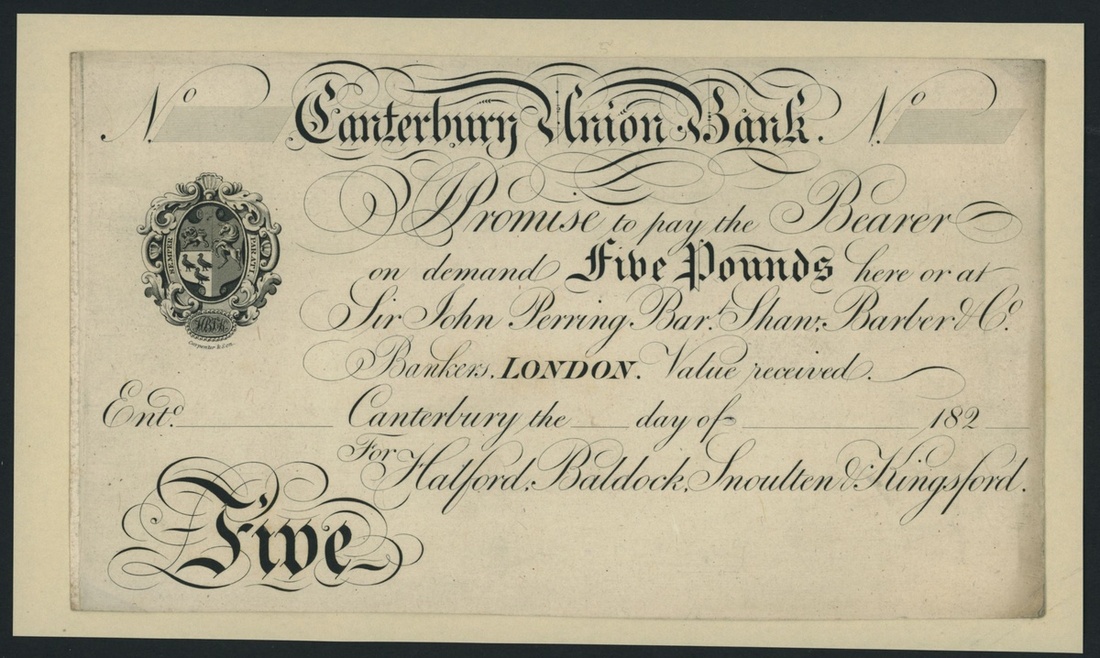 5
No Canterbury Union Bank. No
I Promise to pay the Bearer
on demand Five Pounds here or at
Sir John Perring Bart. Shaw, Barber & Co.
Bankers, LONDON. Value received.
SEMPER PARATI
HBSK
Carpenter & Son.
Entd. Canterbury the day of 182
For Halford, Baldock, Snoulten & Kingsford.
Five